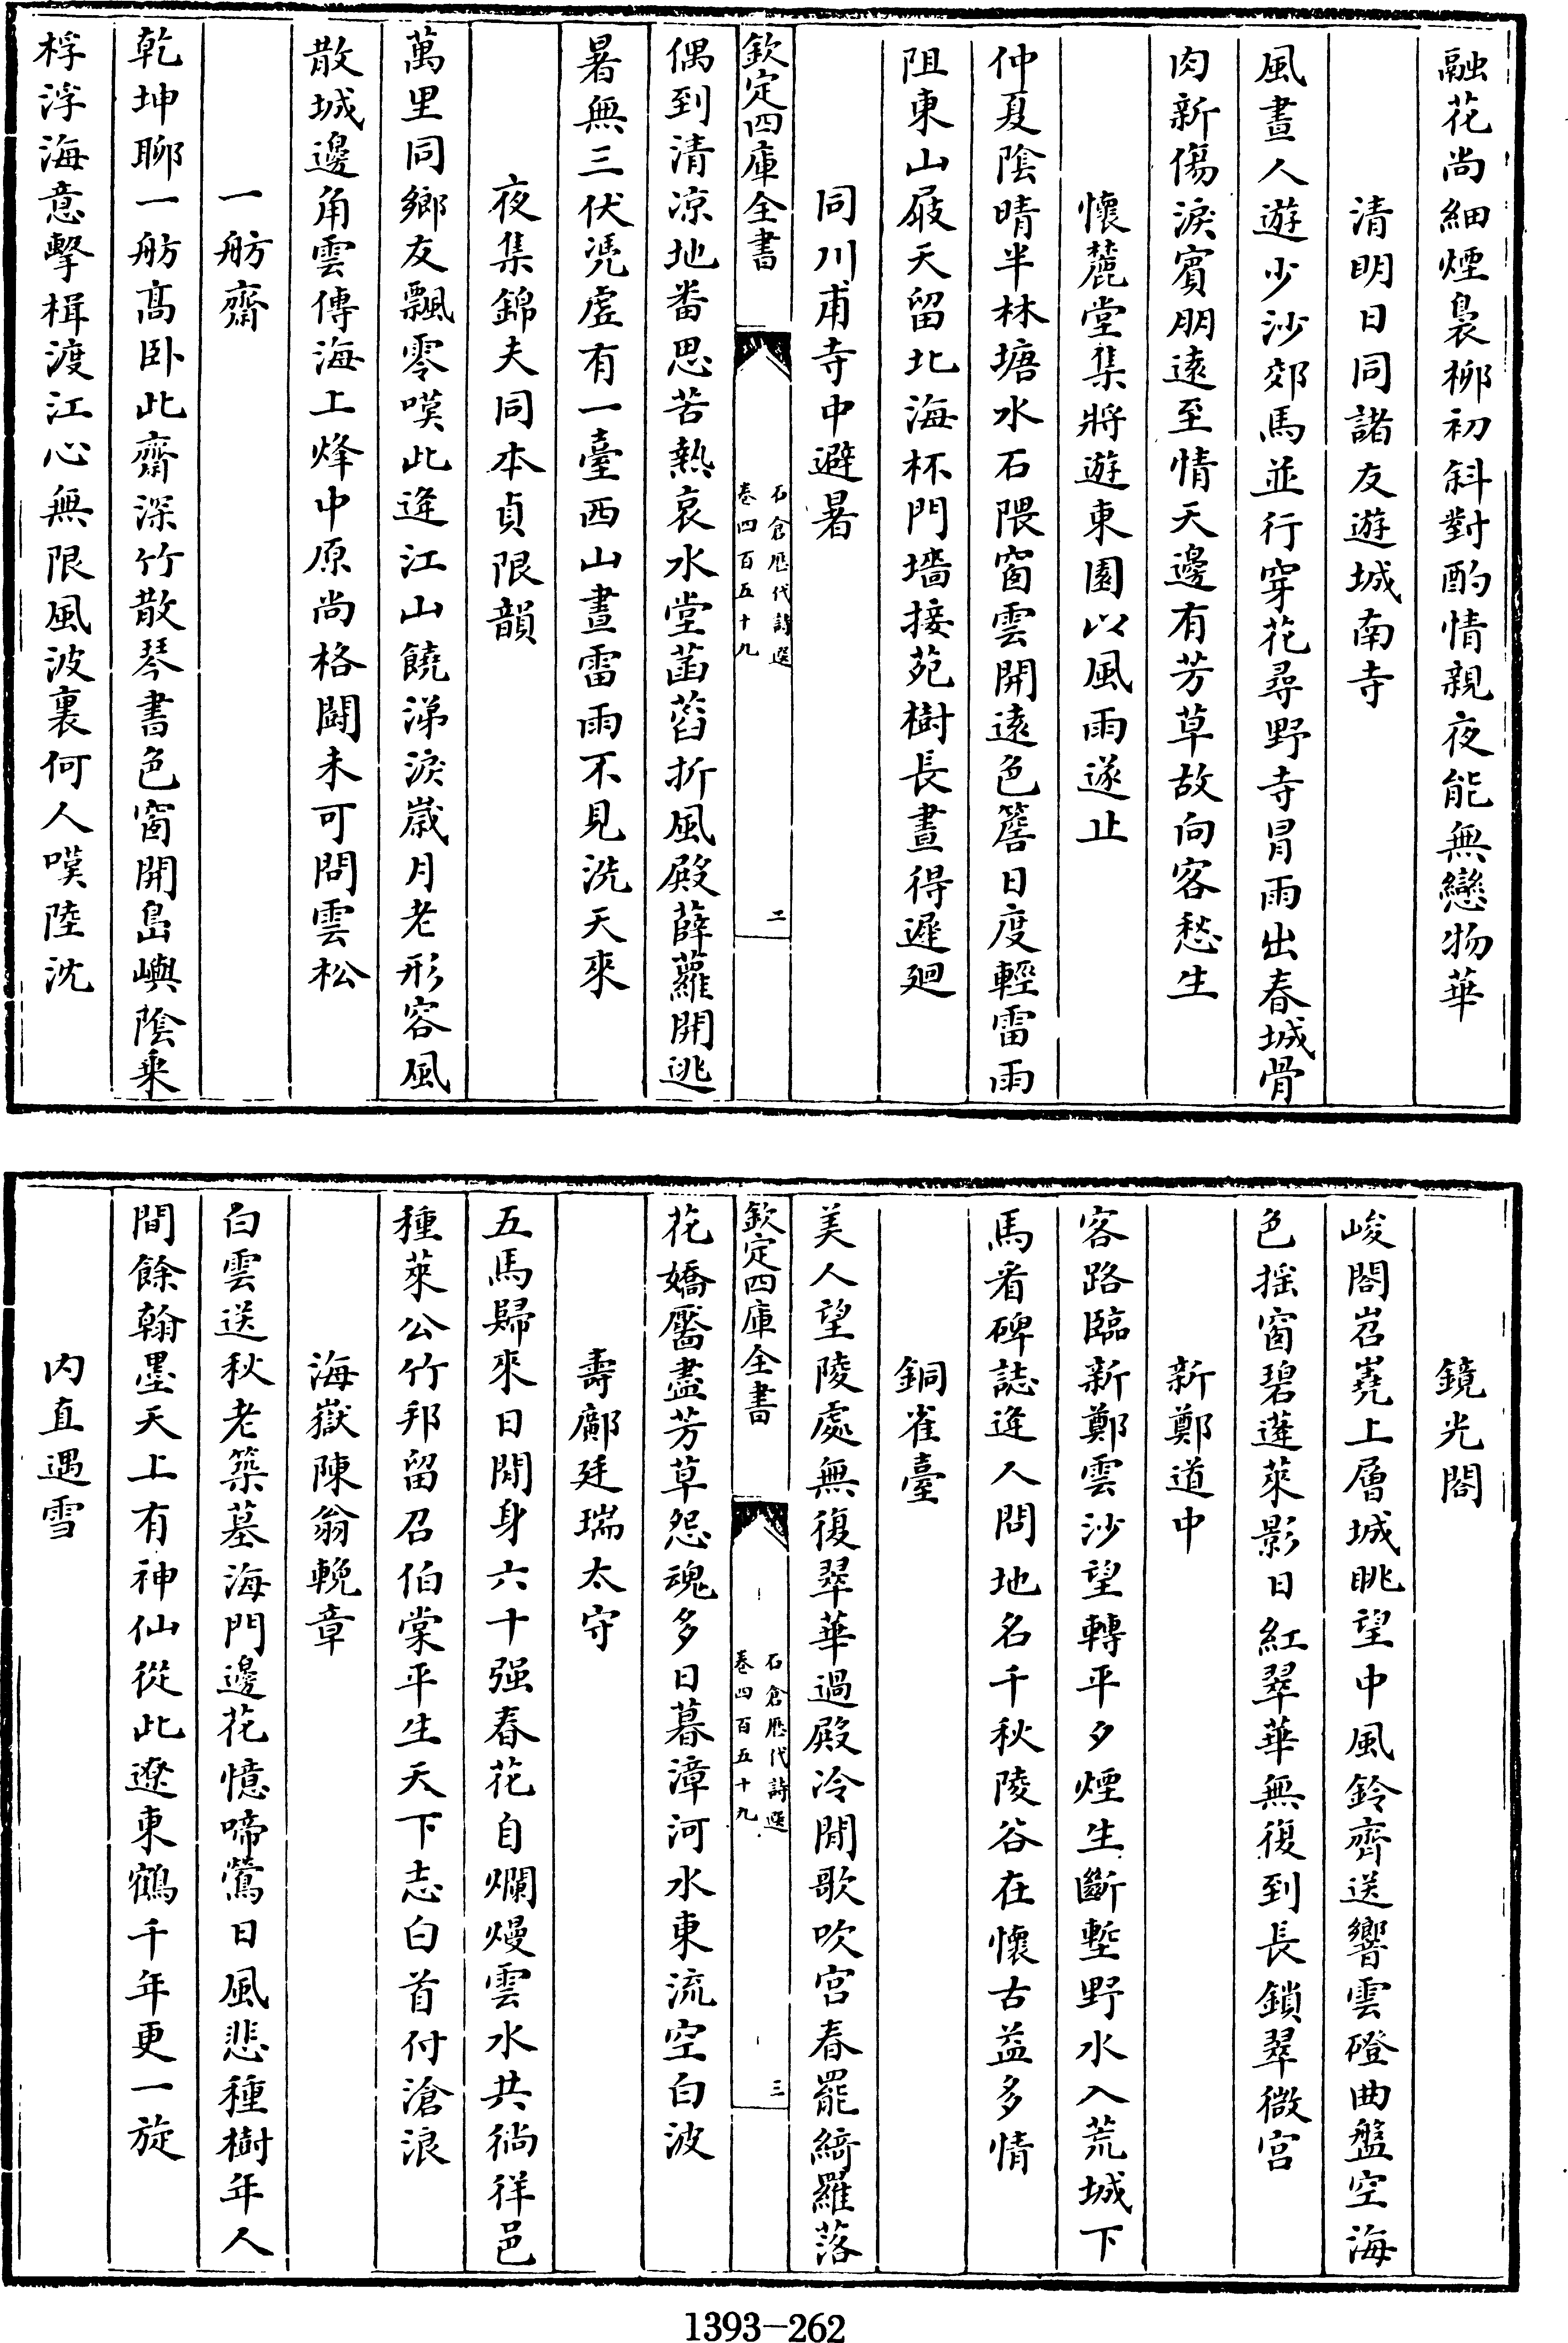 融花尚細煙裊栁初斜對酌情親夜能無戀物華
清明日同諸友遊城南寺
風晝人遊少沙郊馬並行穿花尋野寺冒雨出春城骨
肉新傷淚賓朋遠至情天邊有芳草故向客愁生
懷麓堂集將遊東園以風雨遂止
仲夏陰晴半林塘水石隈窗雲開遠色簷日度輕雷雨
阻東山屐天留北海杯門墻接苑樹長晝得遲廻
同川甫寺中避暑
欽定四庫全書
石倉歷代詩選
卷四百五十九
二
偶到清凉地畨思苦熱哀水堂菡萏折風殿薜蘿開逃
暑無三伏凭虛有一臺西山晝雷雨不見洗天來
夜集錦夫同本貞限韻
萬里同鄉友飄零嘆此逢江山饒涕淚歲月老形容風
散城邊角雲傳海上烽中原尚格鬬未可問雲松
一舫齋
乾坤聊一舫髙卧此齋深竹散琴書色窗開島嶼陰乗
桴浮海意擊楫渡江心無限風波裏何人嘆陸沈
鏡光閣
峻閣岧嶤上層城眺望中風鈴齊送響雲磴曲盤空海
色揺窗碧蓬萊影日紅翠華無復到長鎖翠微宫
新鄭道中
客路臨新鄭雲沙望轉平夕煙生斷塹野水入荒城下
馬看碑誌逢人問地名千秋陵谷在懷古益多情
銅雀臺
美人望陵處無復翠華過殿冷閒歌吹宫春罷綺羅落
欽定四庫全書
石倉歷代詩選
卷四百五十九
三
花嬌靨盡芳草怨魂多日暮漳河水東流空白波
壽鄺廷瑞太守
五馬歸來日閒身六十强春花自爛熳雲水共徜徉邑
種萊公竹邦留召伯棠平生天下志白首付滄浪
海嶽陳翁輓章
白雲送秋老築墓海門邊花憶啼鶯日風悲種樹年人
間餘翰墨天上有神仙從此遼東鶴千年更一旋
内直遇雪
1393-262